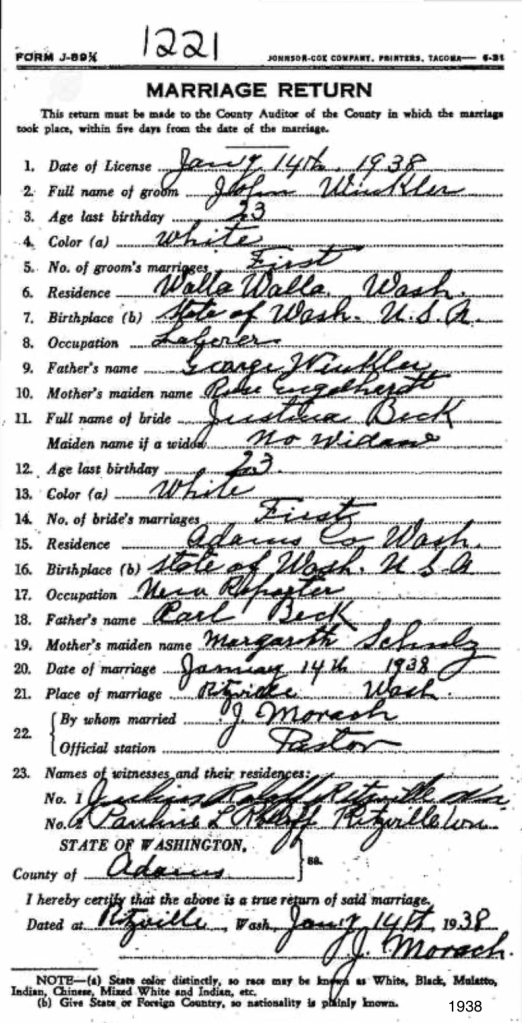 1221
FORM J-89½ JOHNSON-COX COMPANY, PRINTERS, TACOMA— 6-31
MARRIAGE RETURN
This return must be made to the County Auditor of the County in which the marriage
took place, within five days from the date of the marriage.
1. Date of License Jan'y 14th, 1938
2. Full name of groom John Winkler
3. Age last birthday 23
4. Color (a) White
5. No. of groom's marriages First
6. Residence Walla Walla, Wash.
7. Birthplace (b) State of Wash. U.S.A.
8. Occupation Laborer
9. Father's name George Winkler
10. Mother's maiden name Rose Engelhardt
11. Full name of bride Justina Beck
Maiden name if a widow No Widow
12. Age last birthday 23.
13. Color (a) White
14. No. of bride's marriages First
15. Residence Adams Co Wash.
16. Birthplace (b) State of Wash. U.S.A
17. Occupation Reporter
18. Father's name Karl Beck
19. Mother's maiden name Margaroth Schulz
20. Date of marriage January 14th 1938
21. Place of marriage Ritzville Wash.
22. By whom married J. Morach
Official station Pastor
23. Names of witnesses and their residences:
No. 1 Julius Ritzville Wn
No. 2 Pauline L Ritzville Wn.
STATE OF WASHINGTON,
ss.
County of Adams
I hereby certify that the above is a true return of said marriage.
Dated at Ritzville, Wash., Jan'y 14th 1938
J. J. Morach.
NOTE—(a) State color distinctly, so race may be known as White, Black, Mulatto,
Indian, Chinese, Mixed White and Indian, etc.
(b) Give State or Foreign Country, so nationality is plainly known.
1938